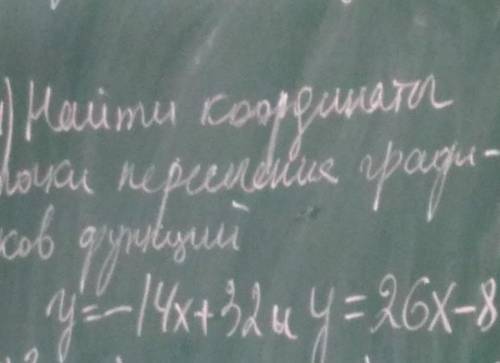 1) Найти координаты
точки пересечения графи-
ков функций
y=-14x+32 и y=26x-8